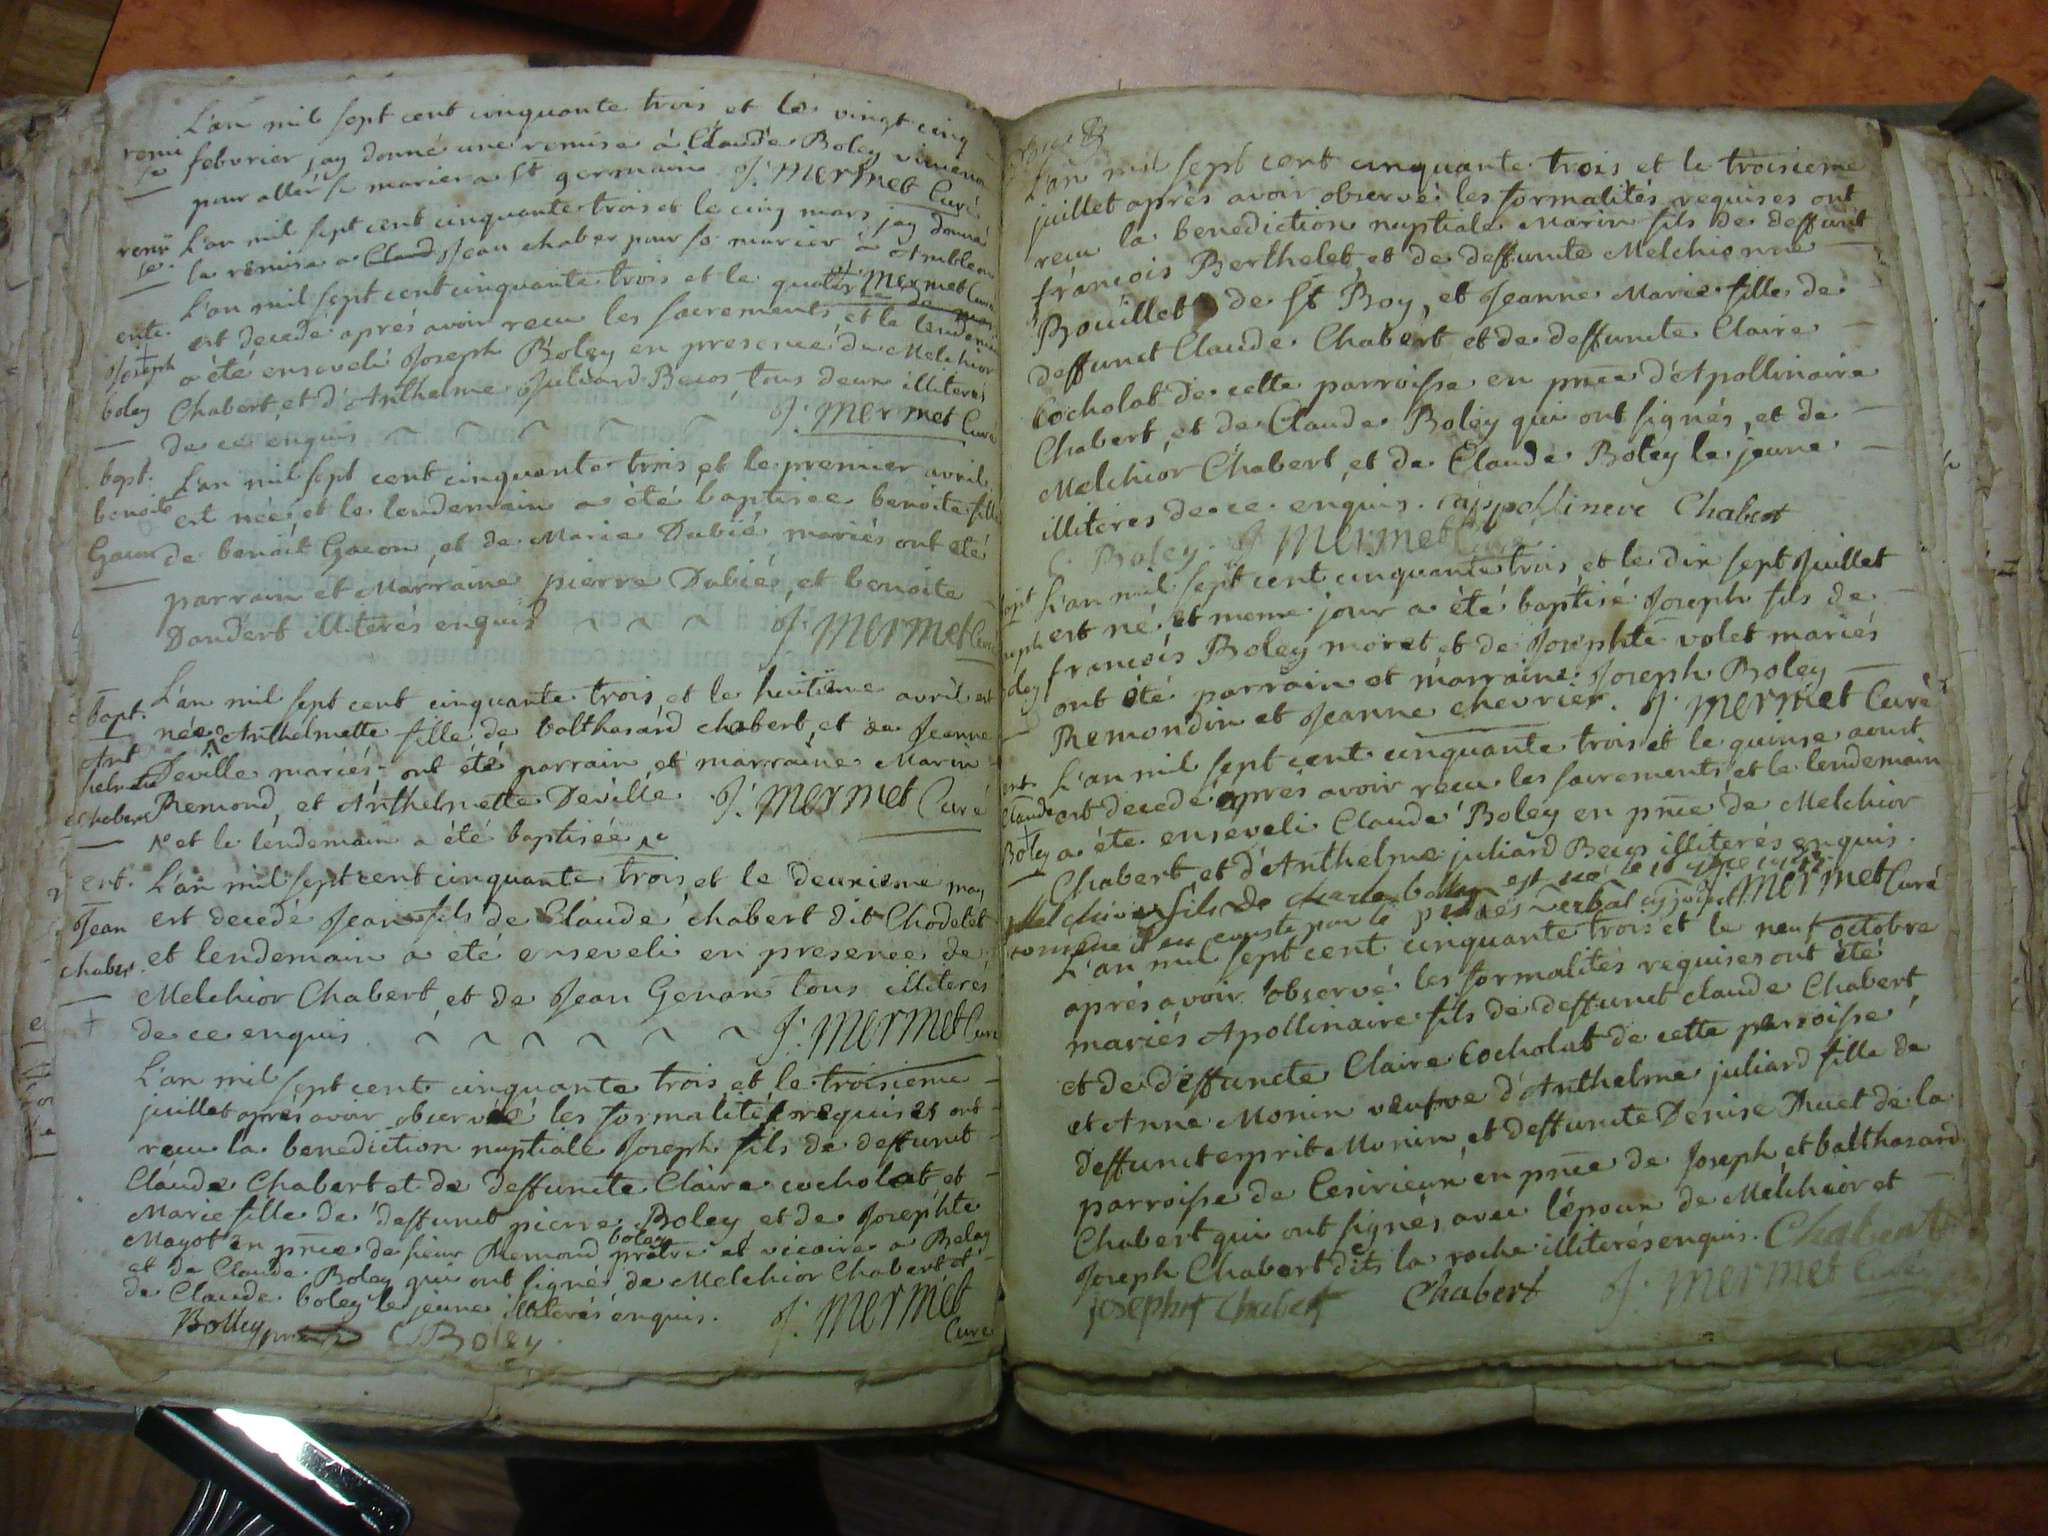 L'an mil sept cent cinquante trois et le vingt cinq
remi febvrier jay donné une remise à Claude Boley
se pour aller se marier a St germain J: Mermet Curé
remi L'an mil sept cent cinquante trois et le cinq mars jay donné
se la remise a Claud Jean chaber pour se marier à
L'an mil sept cent cinquante trois et le quatorze de mars J: Mermet Curé
ente. est decedé aprés avoir recu les sacrements et le lendemin
Joseph a été enseveli Joseph Boley en presence de Melchior
boley Chabert et d'Anthelme Juliard Becos tous deux illiterés
de ce enquis J: Mermet Curé
bapt. L'an mil sept cent cinquante trois et le premier avril
benoite est née et le lendemain a été baptisee benoite fille
Gacon de benoit Gacon, et de Marie Dubié mariés ont été
parrain et Marraine pierre Dubiés, et benoite
Dandert illiterés enquis J: Mermet Curé
bapt. L'an mil sept cent cinquante trois, et le huitieme avril est
née Anthelmette fille de balthasard chabert, et de Jeanne
Ant Deville mariés ont été parrain et marraine Marin
helmette
Chabert Remond, et Anthelmette Deville J: Mermet Curé
et le lendemain a été baptisée
ent. L'an mil sept cent cinquante trois et le deuxieme may
Jean est decedé Jean fils de Claude chabert dit Chodelet
chaber et lendemain a été enseveli en presence de
Melchior Chabert, et de Jean Genan tous illiterés
de ce enquis J: Mermet Curé
L'an mil sept cent cinquante trois et le troisieme
juillet aprés avoir observéé les formalités requises ont
recu la benediction nuptiale Joseph fils de deffunt
Claude Chabert et de deffuncte Claire cocholat et
Marie fille de deffunct pierre Boley et de Josephte
Mayot en pnce de sieur Remond boley prêtre et vicaire a Beley
et de Claude Boley qui ont signés de Melchior Chabert et
de Claude boley le jeune illiterés enquis. J: Mermet
Bolley C Boley Curé
L'an mil sept cent cinquante trois et le troisieme
juillet aprés avoir observé les formalités requises ont
recu la benediction nuptiale Marin fils de deffunt
françois Berthelet et de deffuncte Melchionne
Bouillet de St Boy, et Jeanne Marie fille de
deffunct Claude Chabert et de deffuncte Claire
Cocholat de cette parroisse en pnce d'Apollinaire
Chabert, et de Claude Boley qui ont signés, et de
Melchior Chabert, et de Claude Boley le jeune
illiteres de ce enquis. appollinere Chabert
C Boley. J Mermet Curé
L'an mil sept cent cinquante trois et le dix sept Juillet
est né et meme jour a été baptisé Joseph fils de
françois Boley moret et de Josephte volet mariés
ont été parrain et marraine Joseph Boley
Remondin et Jeanne chevrier. J: Mermet Curé
L'an mil sept cent cinquante trois et le quinse aoust
Claude est decedé aprés avoir recu les sacrements et le lendemain
Boley a été enseveli Claude Boley en pnce de Melchior
Chabert et d'Anthelme juliard Becos illiterés enquis.
Melchior fils de boley est né le
comme il en conste par le procés verbal cy joint J Mermet Curé
L'an mil sept cent cinquante trois et le neuf octobre
aprés avoir observé les formalités requises ont été
mariés Apollinaire fils de deffunct claude Chabert
et de deffuncte Claire Cocholat de cette parroisse
et Anne Monin veufve d'Anthelme juliard fille de
deffunct esprit Monin, et deffuncte Denise Thuet de la
parroisse de Cesirieux en pnce de Joseph et balthasard
Chabert qui ont signés avec l'époux de Melchior et
Joseph Chabert dits la roche illiterés enquis. Chabert
josepht Chabert Chabert J: Mermet Curé